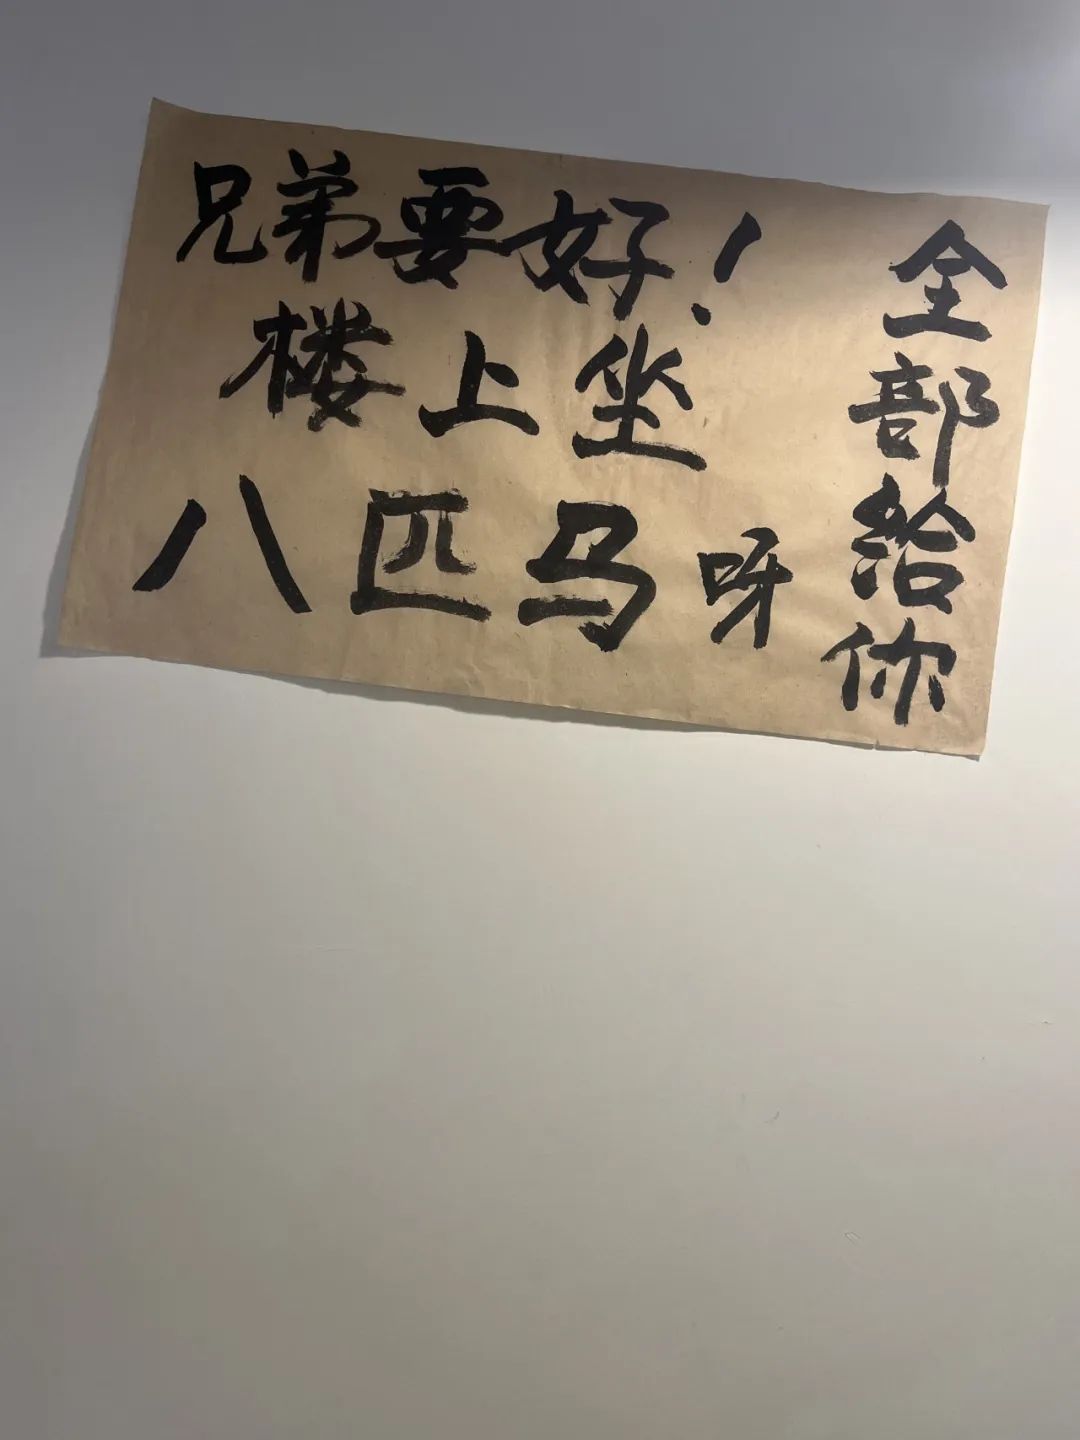 兄弟要好！
楼上坐
八匹马呀
全部给你